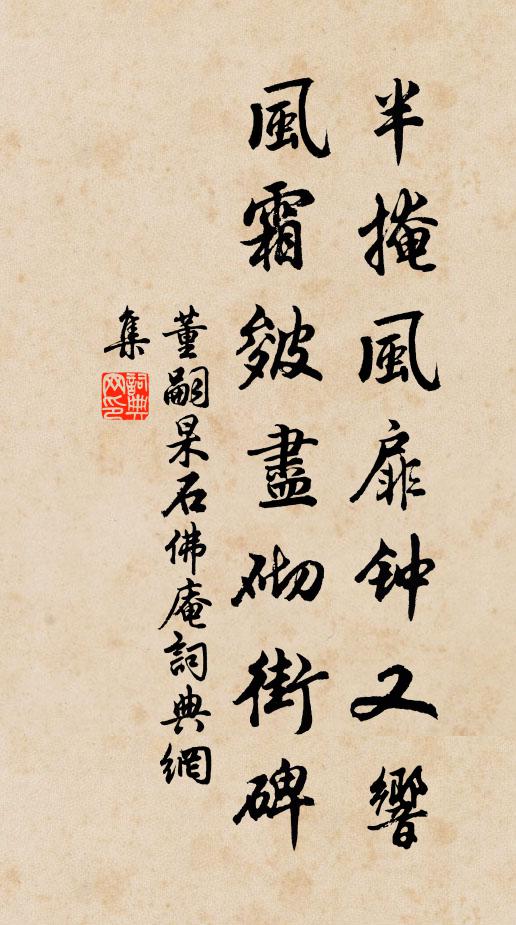 半掩風扉钟又響
風霜皴盡砌街碑
董嗣杲石佛庵詞典網
集
詞典网印